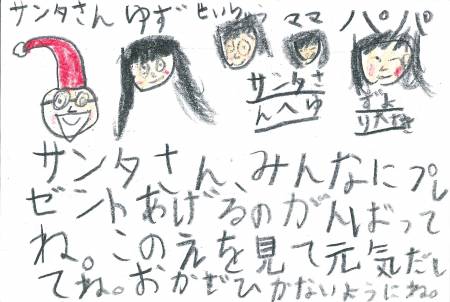 サンタさん ゆず といちゃん ママ パパ
サンタさ
んへゆ
ずよ
り大好き
サンタさん、みんなにプレ
ゼントあげるのがんばって
ね。このえを見て元気だし
てね。おかぜひかないようにね。